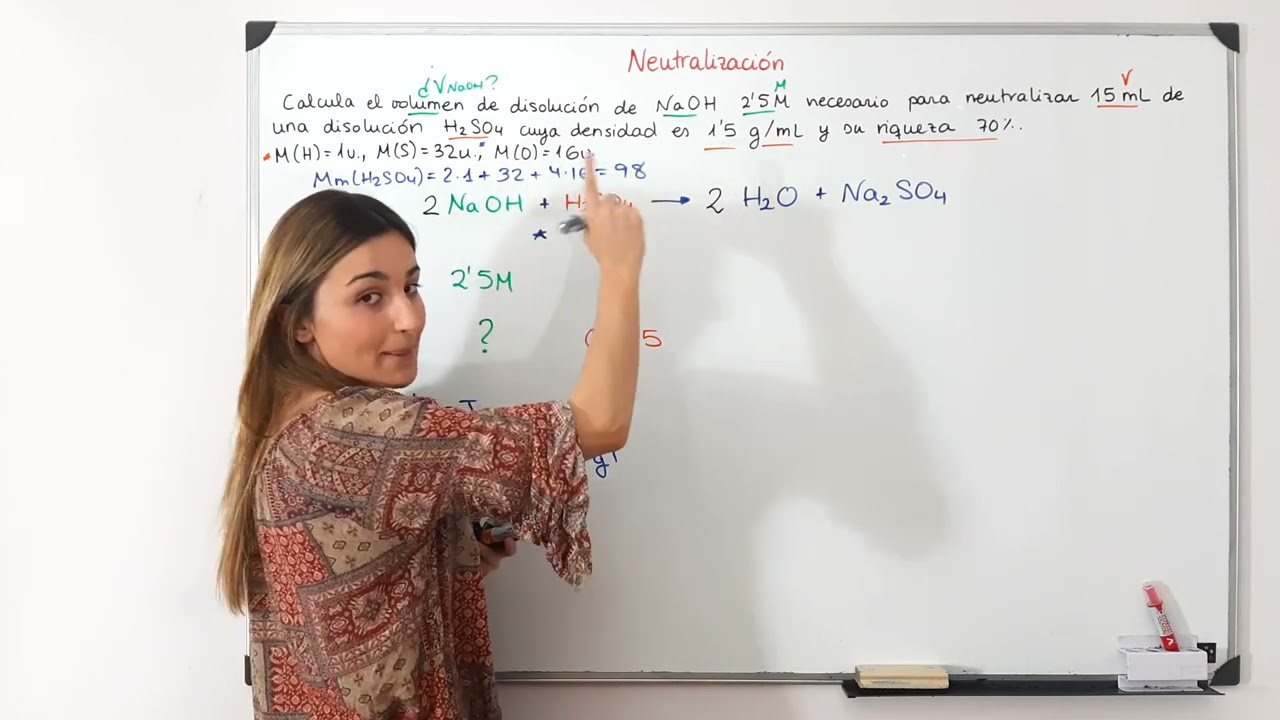 Neutralización
¿V NaOH?
M
V
Calcula el volumen de disolución de NaOH 2'5M necesario para neutralizar 15 mL de
una disolución H₂SO₄ cuya densidad es 1'5 g/mL y su riqueza 70%.
* M(H)=1u., M(S)=32u., M(O)=16u
Mm(H₂SO₄)=2·1+32+4·16=98
2 NaOH + H₂SO₄ → 2 H₂O + Na₂SO₄
*
2'5M
? 5